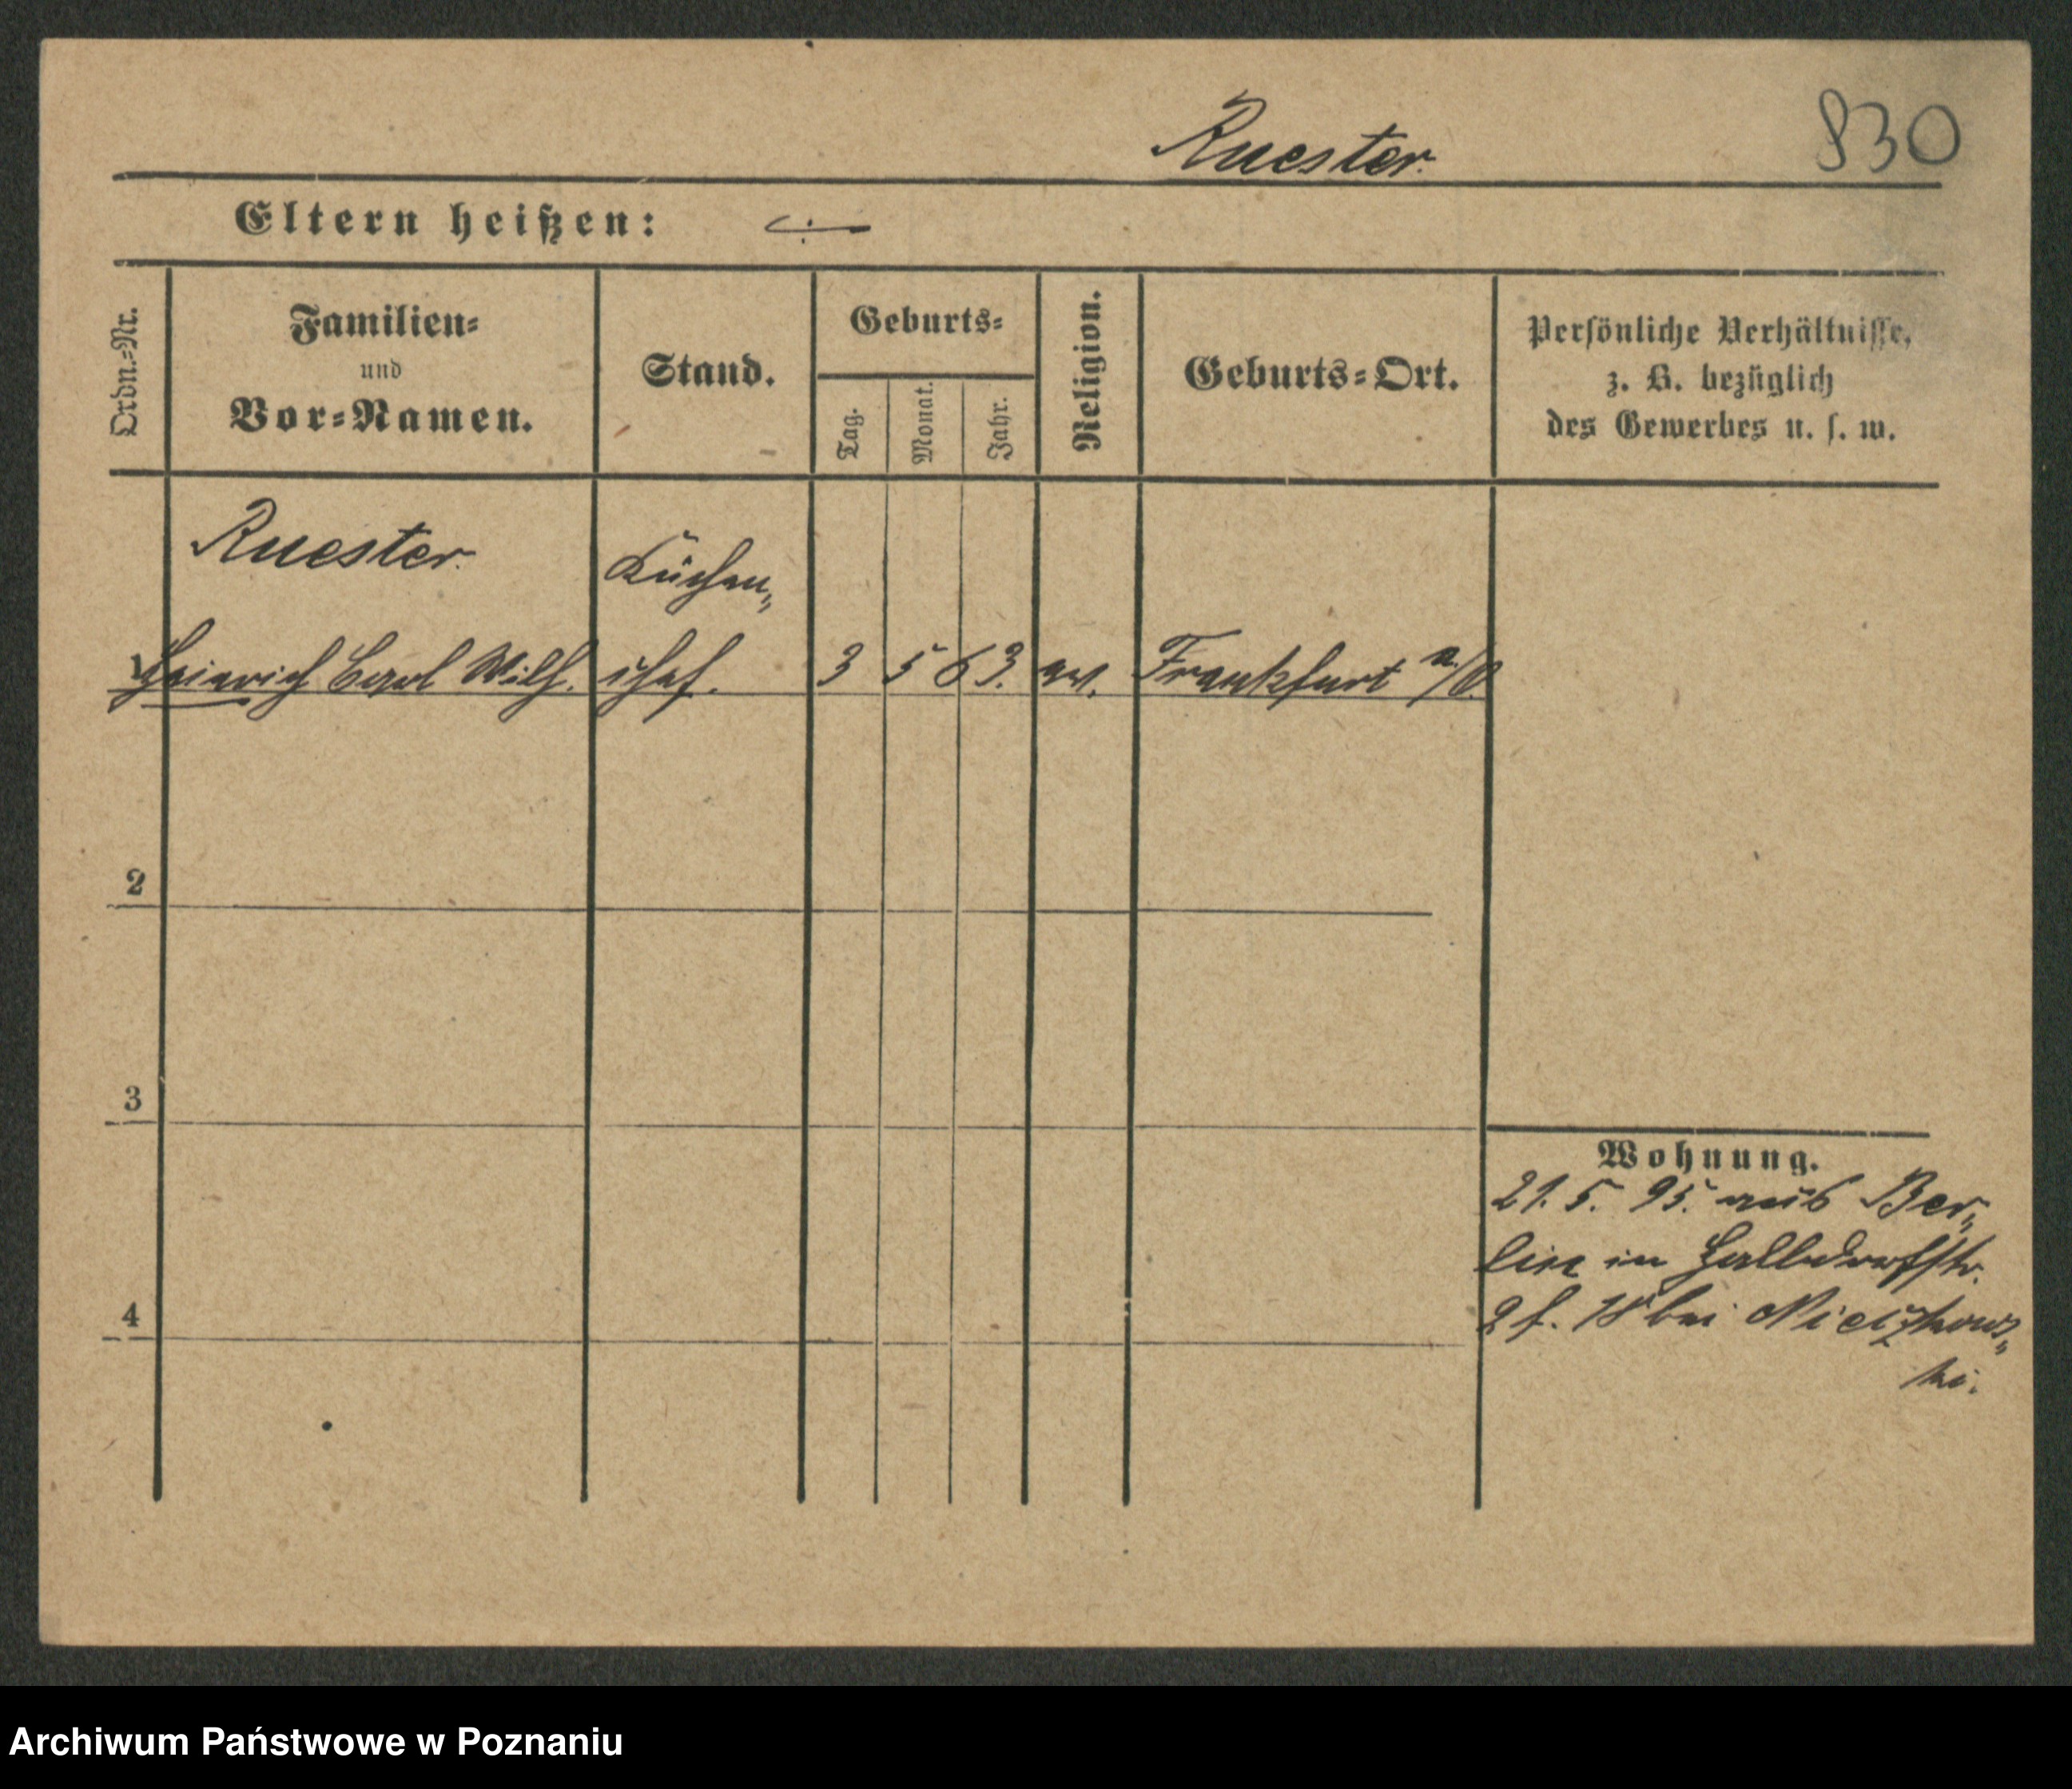 Ruester.
830
Eltern heißen: ·/·
Ordn.-Nr.
Familien-
und
Vor-Namen.
Stand.
Geburts-
Tag.
Monat.
Jahr.
Religion.
Geburts-Ort.
Persönliche Verhältnisse,
z. B. bezüglich
des Gewerbes u. s. w.
Ruester.
Küchen„
1 Heinrich Carl Wilh. chef. 3 5 63. ev. Frankfurt a./O.
2
3
4
Wohnung.
21. 5. 95. aus Ber„
lin in Halldorfstr.
bei
ki.
Archiwum Państwowe w Poznaniu